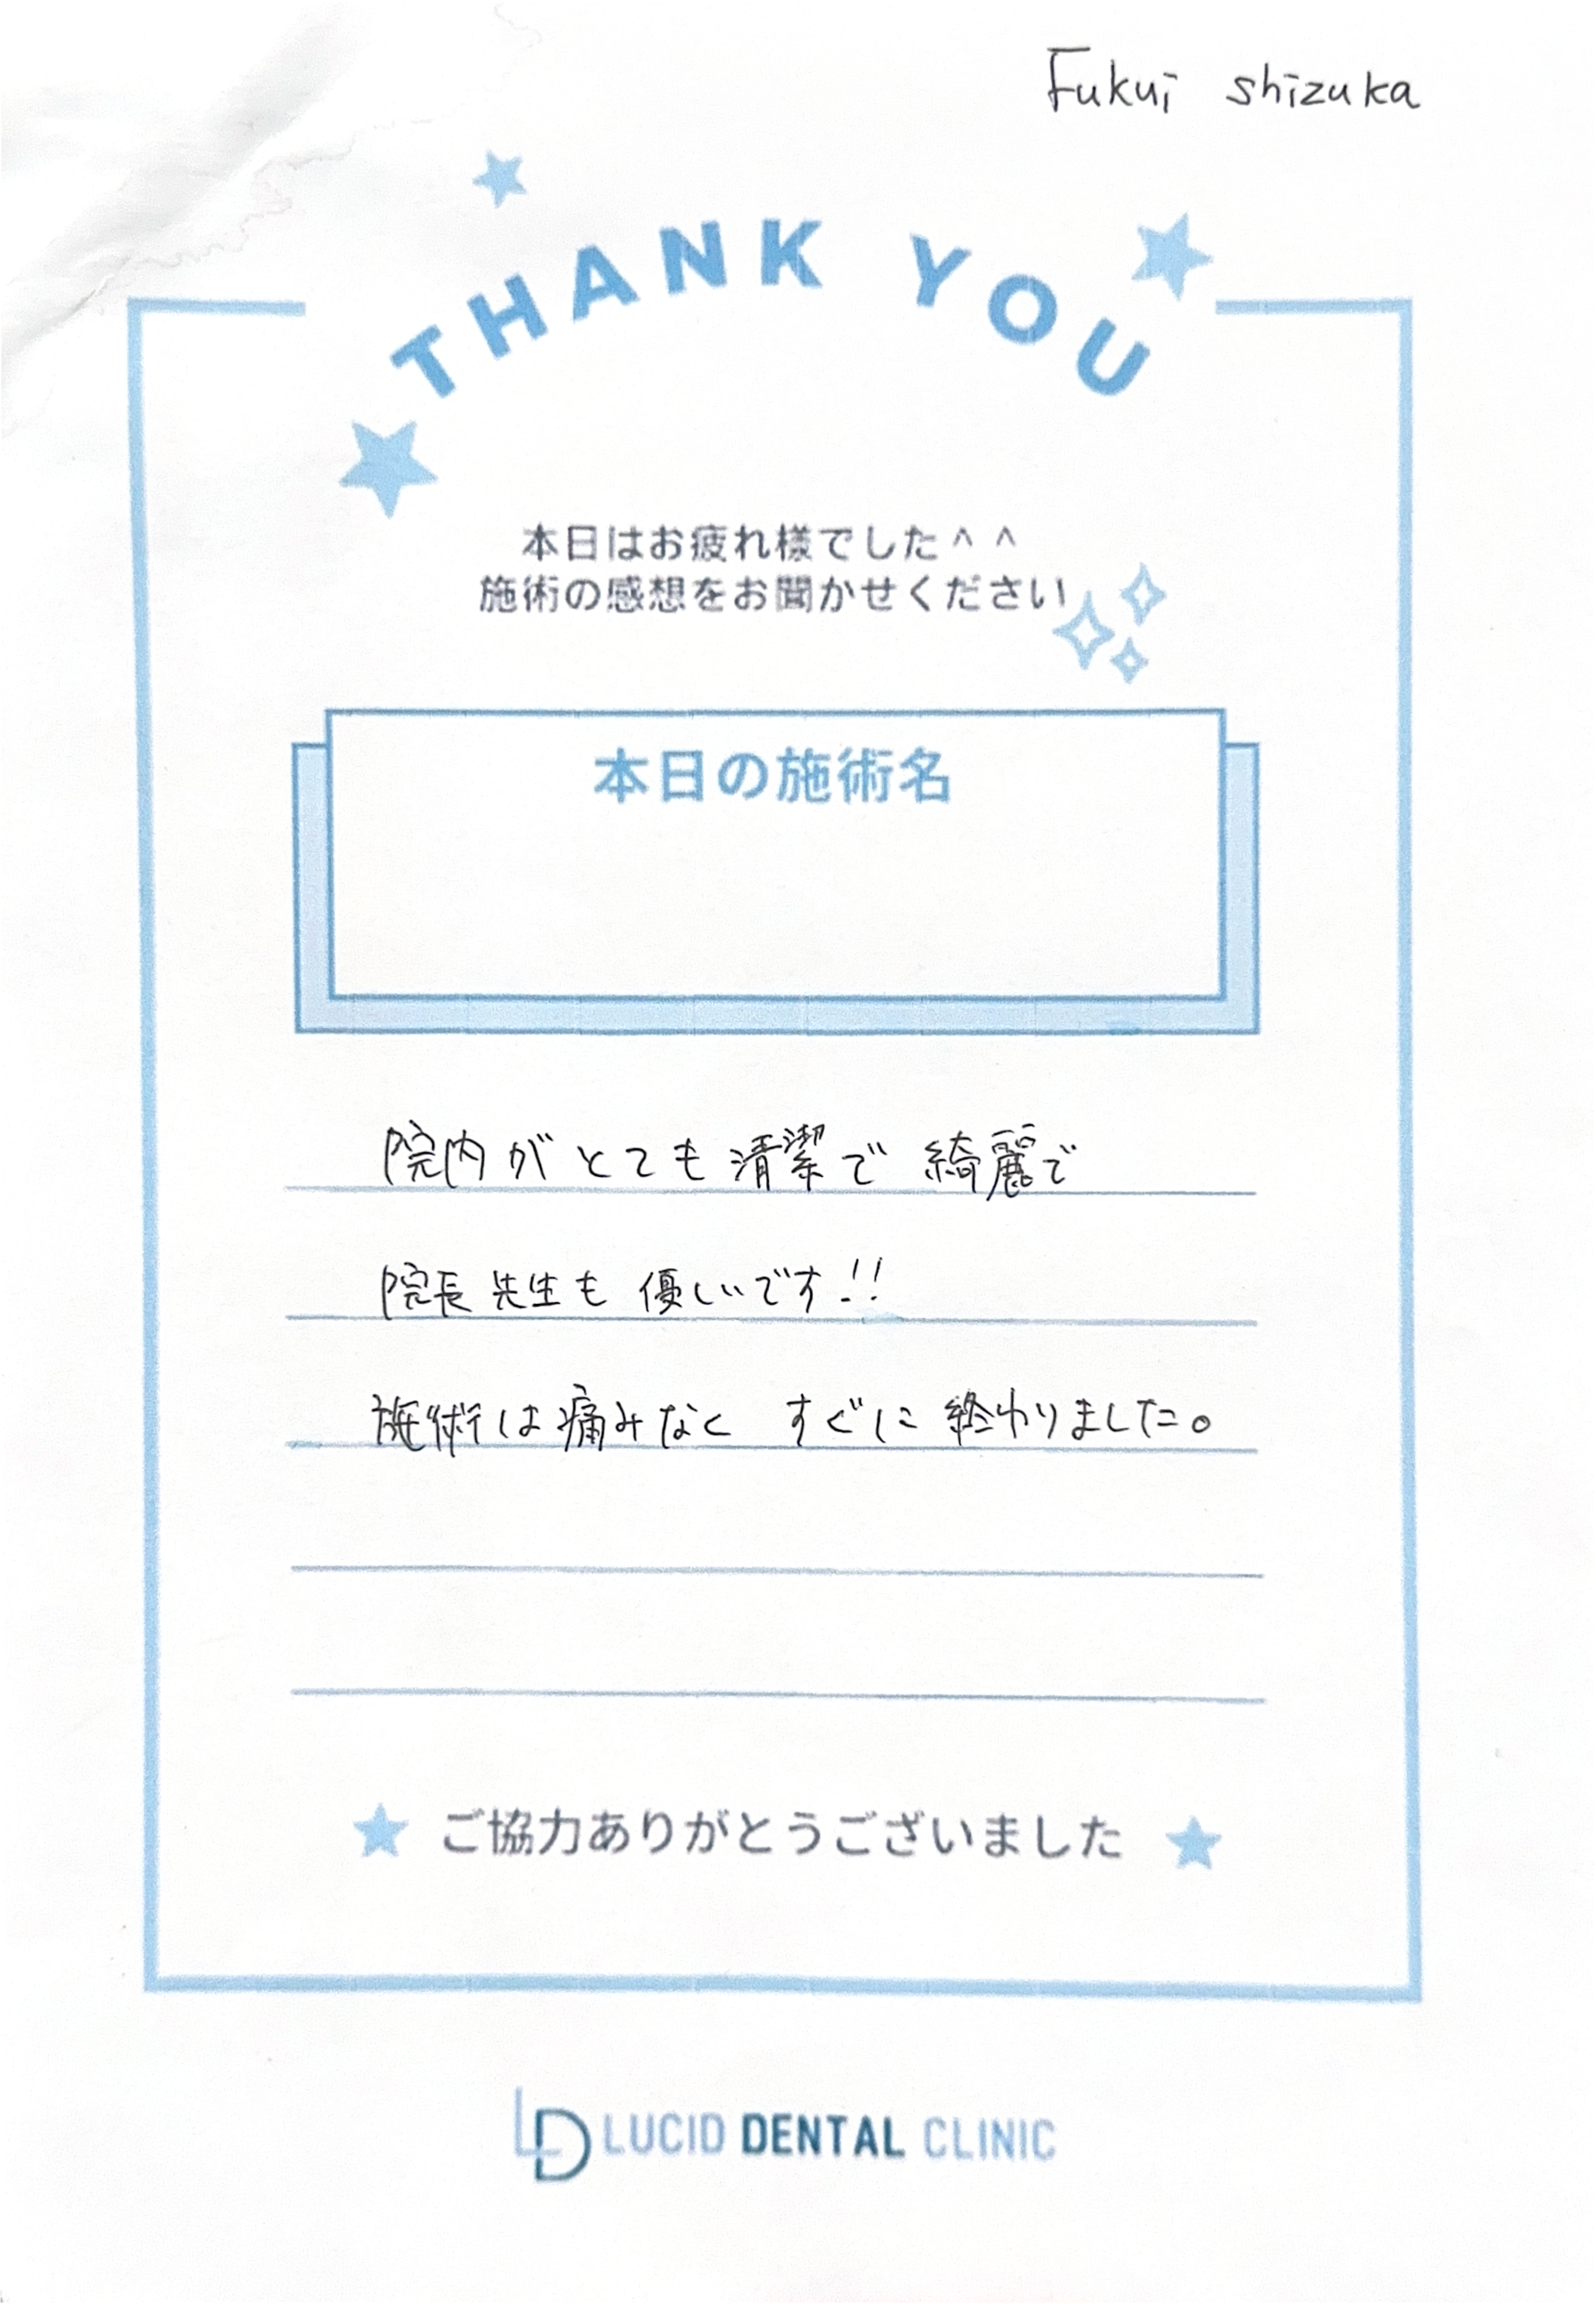 Fukui shizuka
THANK YOU
本日はお疲れ様でした^ ^
施術の感想をお聞かせください
本日の施術名
院内がとても清潔で 綺麗で
院長先生も 優しいです!!
施術は痛みなく すぐに終わりました。
ご協力ありがとうございました
LD LUCID DENTAL CLINIC